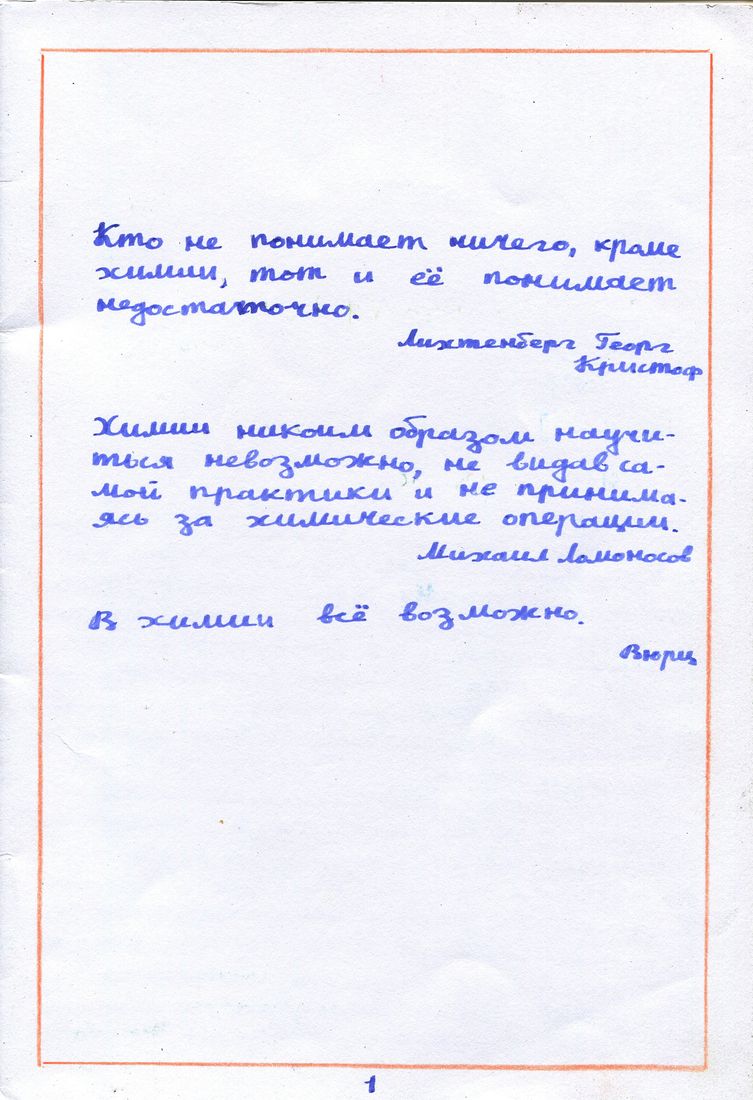 Кто не понимает ничего, кроме
химии, тот и её понимает
недостаточно.
Лихтенберг Георг
Кристоф
Химии никоим образом научи-
ться невозможно, не видав са-
мой практики и не принима-
ясь за химические операции.
Михаил Ломоносов
В химии всё возможно.
Вюрц
1